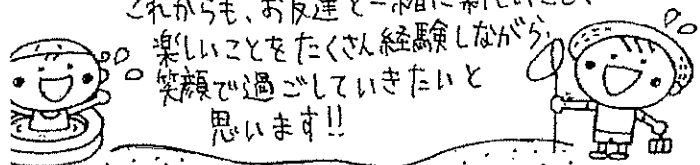 これからも、お友達と一緒に新しいこと、
楽しいことをたくさん経験しながら、
笑顔で過ごしていきたいと
思います!!